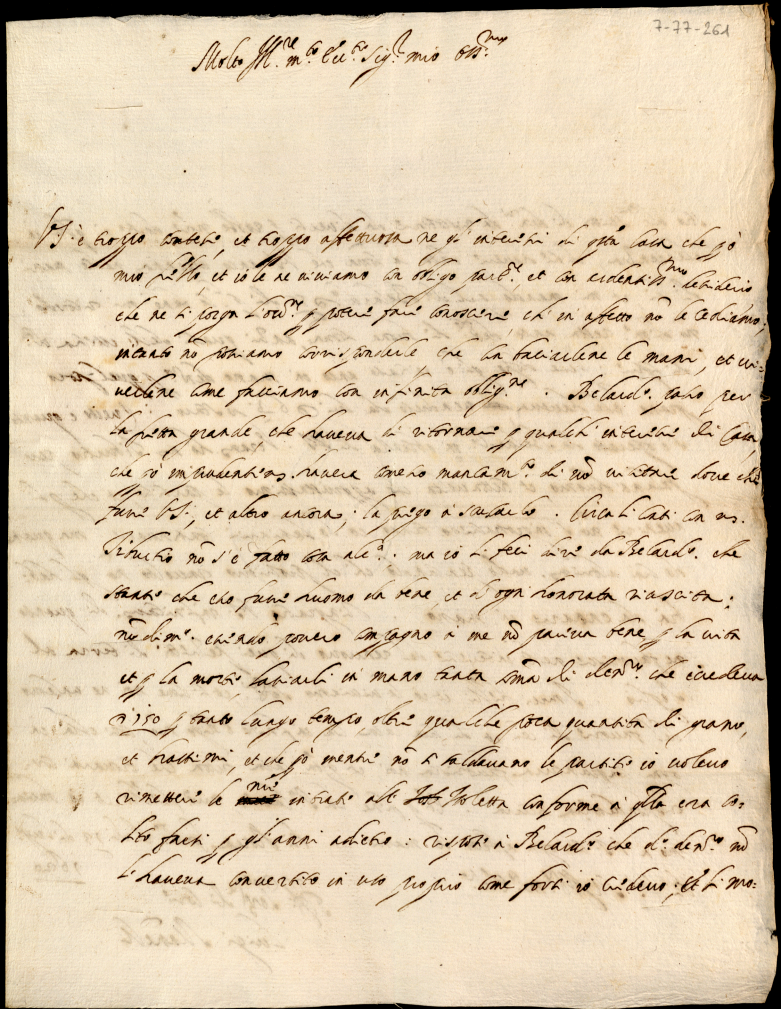 7-77-261
Molto Ill.re m.to Ecc.te Sig.r mio oss.mo
VS. è troppo cortese, et troppo affettuosa ne gl'interessi di q.sta Casa che p.ò
mio et io le ne viviamo con obligo part.re et con ardentiss.mo desiderio
che ne si porga l'occ.ne p poter farle conoscere, ch'in affetto nō le cediamo:
intanto nō possiamo corrisponderle, che con baciarlene le mani, et vi=
verlene come facciamo con infinita oblig.ne. Belard.o per
la fretta grande, che haveva di ritornare p qualche interesse di Casa,
che p.ò imprudentem. haverà comesso mancam.to di nō visitare dove che
fusse VS., et altro ancora; la prego a scusarlo. Circa li con ms.
nō s'è fatto cosa alc.a. ma io li feci dire da Belard.o che
stante che esso fusse huomo da bene, et d'ogni honorata riuscita;
nōdim.o essendo povero compagno a me nō pareva bene p la vita
et p la morte lasciarli in mano tanta sōma di den.ri che eccedeva
150 p tanto lungo tempo, oltre qualche poca quantità di grano,
et che p.ò mentre nō si saldavano le partite io volevo
rimettere le mie intrate all' Isoletta conforme a q.lla era so=
lito farsi p gl'anni adietro: rispose a Belard.o che d.i den.ri nō
l'haveva convertito in uso proprio come forse io credevo; et li mo=